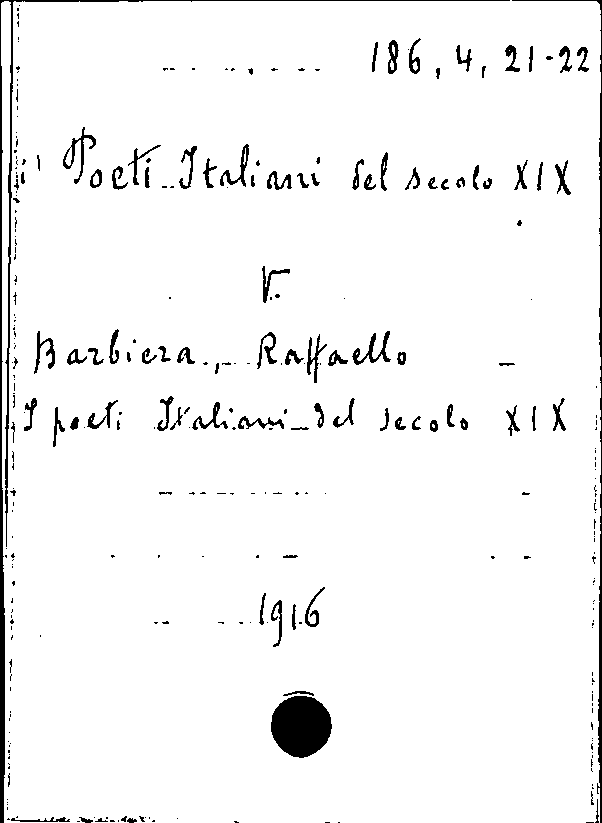 186, 4, 21-22
i' Poeti Italiani del secolo XIX
V.
Barbiera, Raffaello
I poeti Italiani del secolo XIX
1916